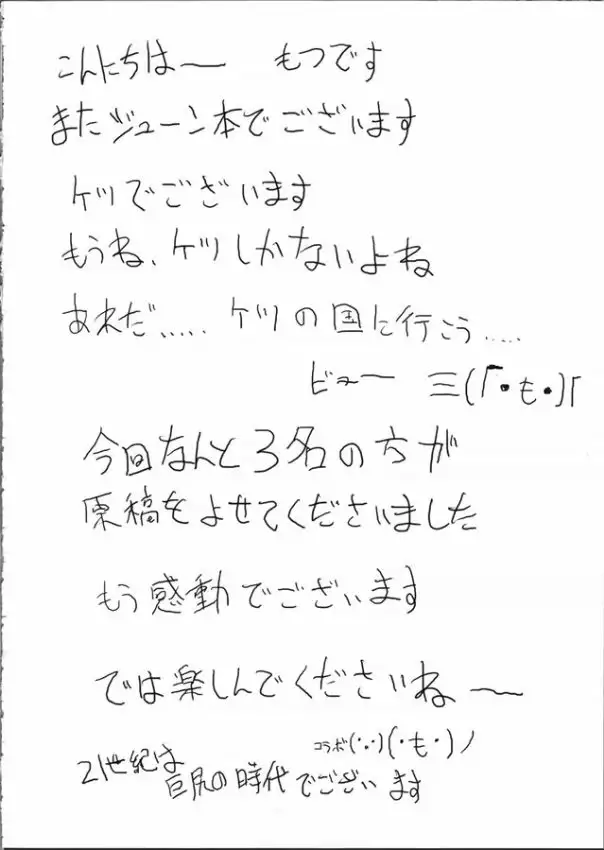 こんにちは〜 もつです
またジューン本でございます
ケツでございます
もうね、ケツしかないよね
あれだ..... ケツの国に行こう....
ビュー 三(「・も・)「
今回なんと3名の方が
原稿をよせてくださいました
もう感動でございます
では楽しんでくださいね〜
コラボ(・・)(・も・)ノ
21世紀は
巨尻の時代でございます